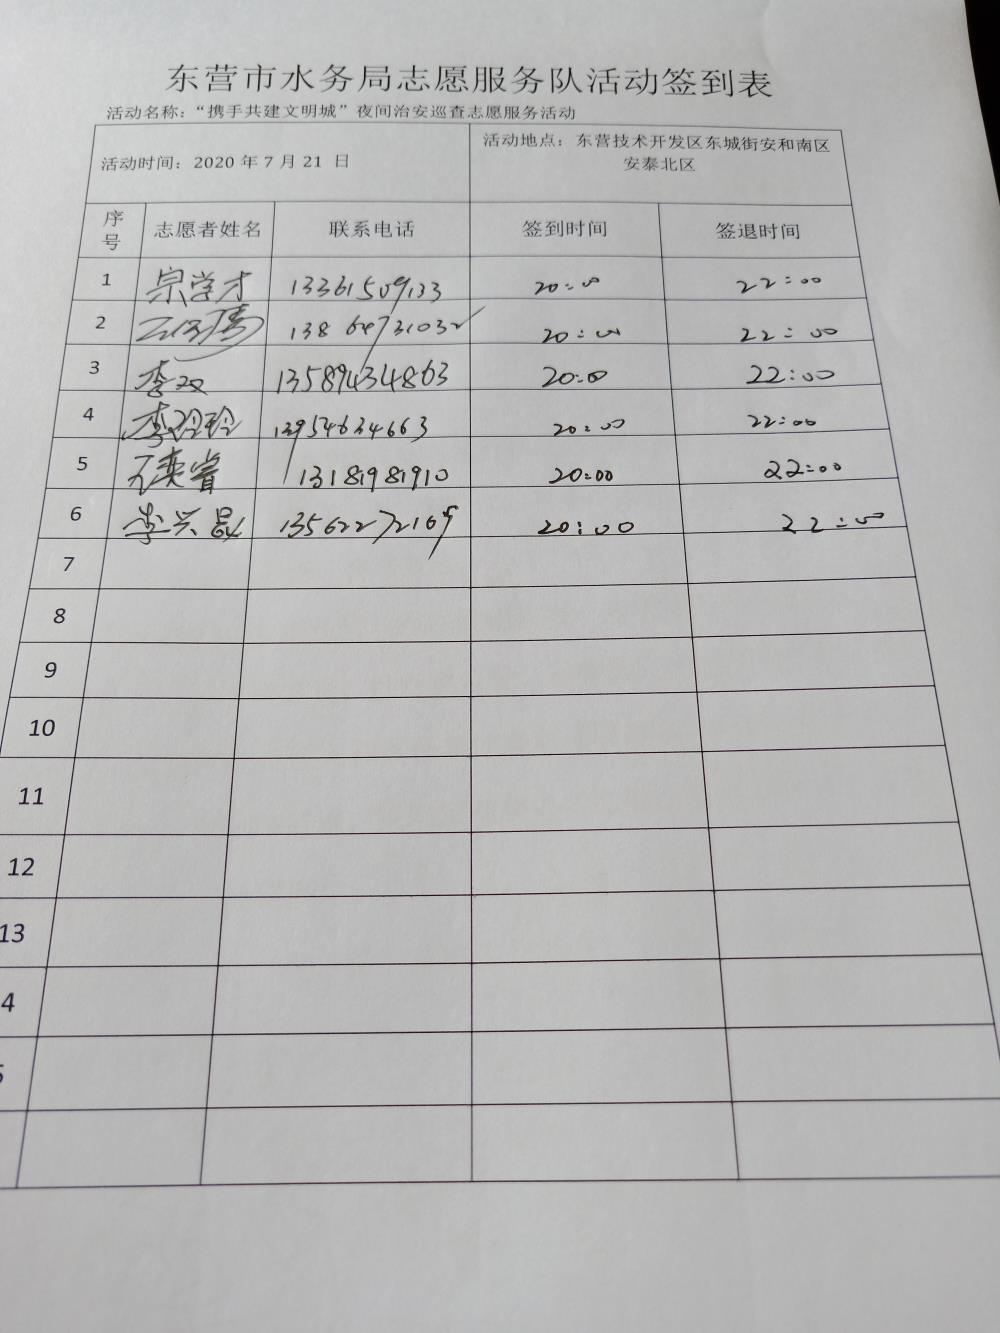 东营市水务局志愿服务队活动签到表
活动名称：“携手共建文明城”夜间治安巡查志愿服务活动
活动时间：2020 年 7 月 21 日
活动地点：东营技术开发区东城街安和南区
安泰北区
序号 志愿者姓名 联系电话 签到时间 签退时间
1 宗学才 13361509133 20:00 22:00
2 13864731032 20:00 22:00
3 李双 13589434863 20:00 22:00
4 李玲玲 13954634663 20:00 22:00
5 13181981910 20:00 22:00
6 李兴晶 13562272169 20:00 22:00
7
8
9
10
11
12
13
4
5